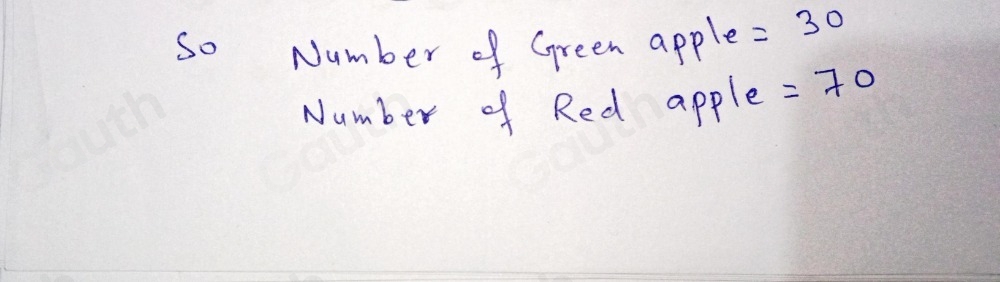 So Number of Green apple = 30
Number of Red apple = 70
Gauth
Gauth
Gauth